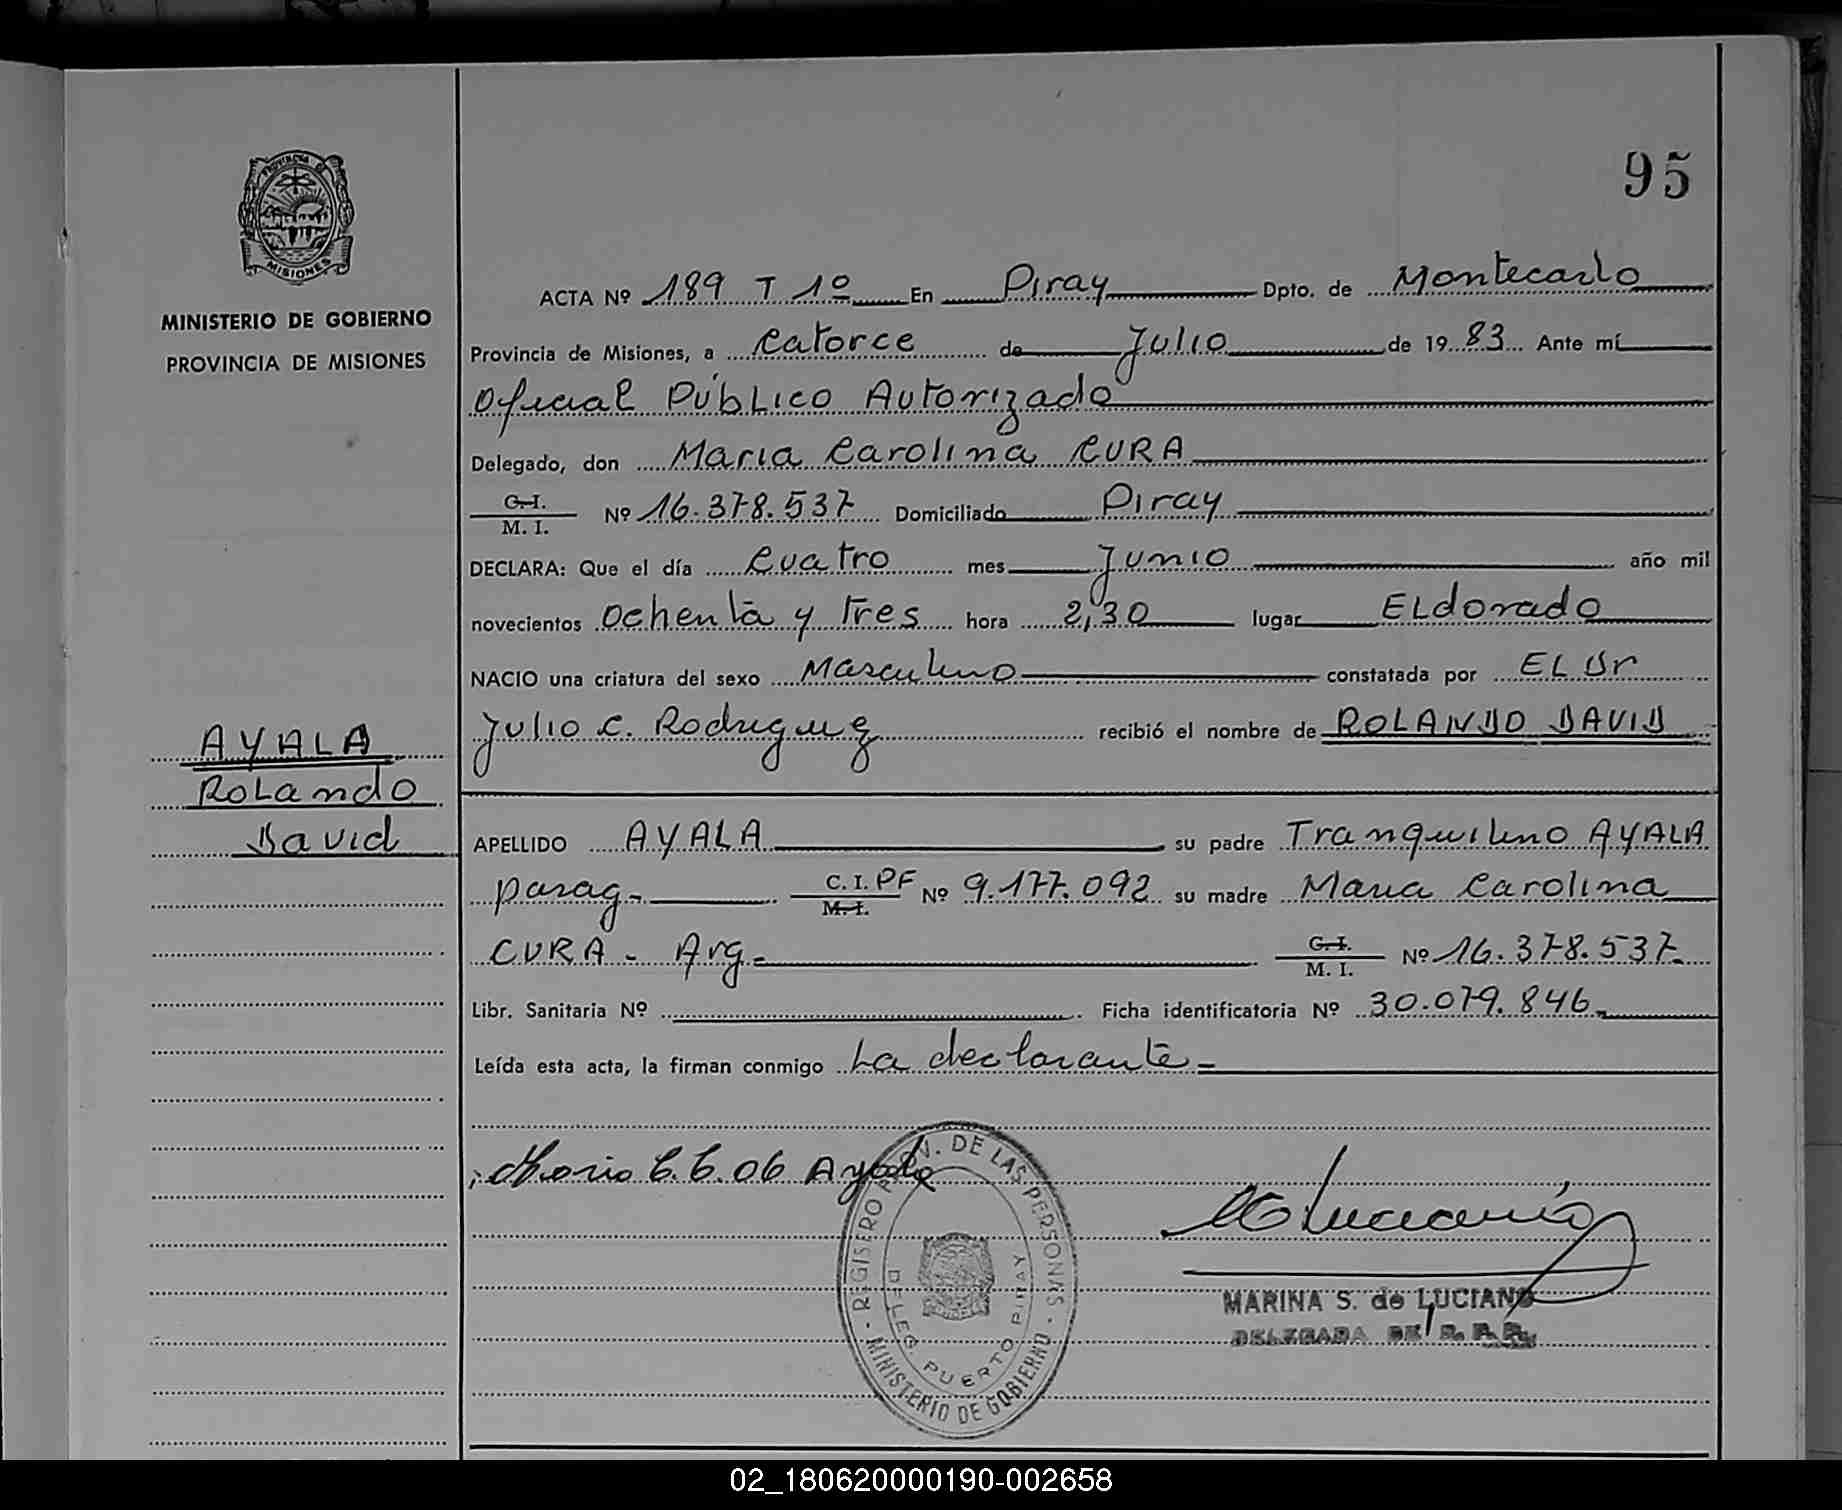 95
PROVINCIA DE
MISIONES
MINISTERIO DE GOBIERNO
PROVINCIA DE MISIONES
AYALA
Rolando
David
ACTA Nº 189 T 1º En Piray Dpto. de Montecarlo
Provincia de Misiones, a Catorce de Julio de 1983 Ante mí
Oficial Público Autorizado
Delegado, don Maria Carolina CURA
C.I. M.I. Nº 16.378.537 Domiciliado Piray
DECLARA: Que el día Cuatro mes Junio año mil
novecientos Ochenta y Tres hora 2,30 lugar ELdorado
NACIO una criatura del sexo Masculino constatada por EL Dr
Julio C. Rodriguez recibió el nombre de ROLANDO DAVID
APELLIDO AYALA su padre Tranquilino AYALA
parag- C.I. PF M.I. Nº 9.177.092 su madre Maria Carolina
CURA - Arg- C.I. M.I. Nº 16.378.537-
Libr. Sanitaria Nº Ficha identificatoria Nº 30.079.846-
Leída esta acta, la firman conmigo La declarante-
Maria C. C. de Ayala
REGISERO PROV. DE LAS PERSONAS
- MINISTERIO DE GOBIERNO -
DELEG. PUERTO PIRAY
MARINA S. de LUCIANO
DELEGADA DE R. P. P.
02_180620000190-002658